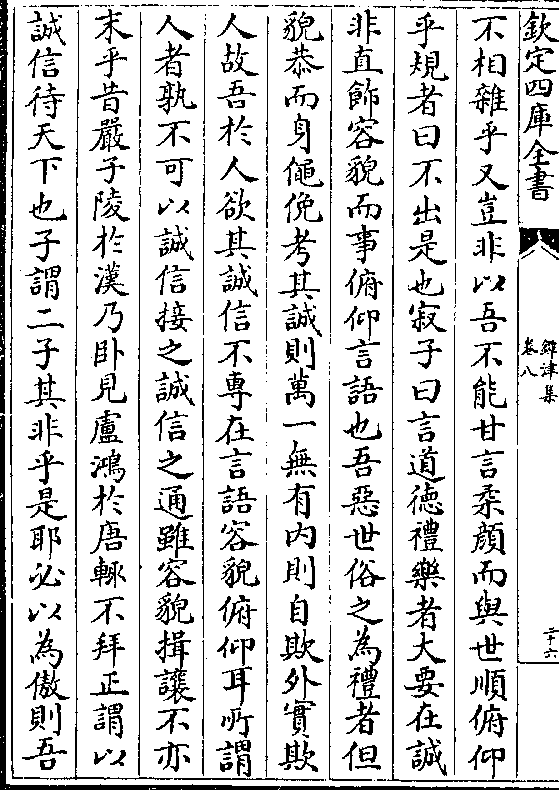 欽定四庫全書
鐔津集
卷八
二十六
不相雜乎又豈非以吾不能甘言柔顔而與世順俯仰
乎規者曰不出是也寂子曰言道德禮樂者大要在誠
非直飾容貌而事俯仰言語也吾惡世俗之為禮者但
貌恭而身僶俛考其誠則萬一無有内則自欺外實欺
人故吾於人欲其誠信不專在言語容貌俯仰耳所謂
人者孰不可以誠信接之誠信之通雖容貌揖讓不亦
末乎昔嚴子陵於漢乃卧見盧鴻於唐輙不拜正謂以
誠信待天下也子謂二子其非乎是耶必以為傲則吾